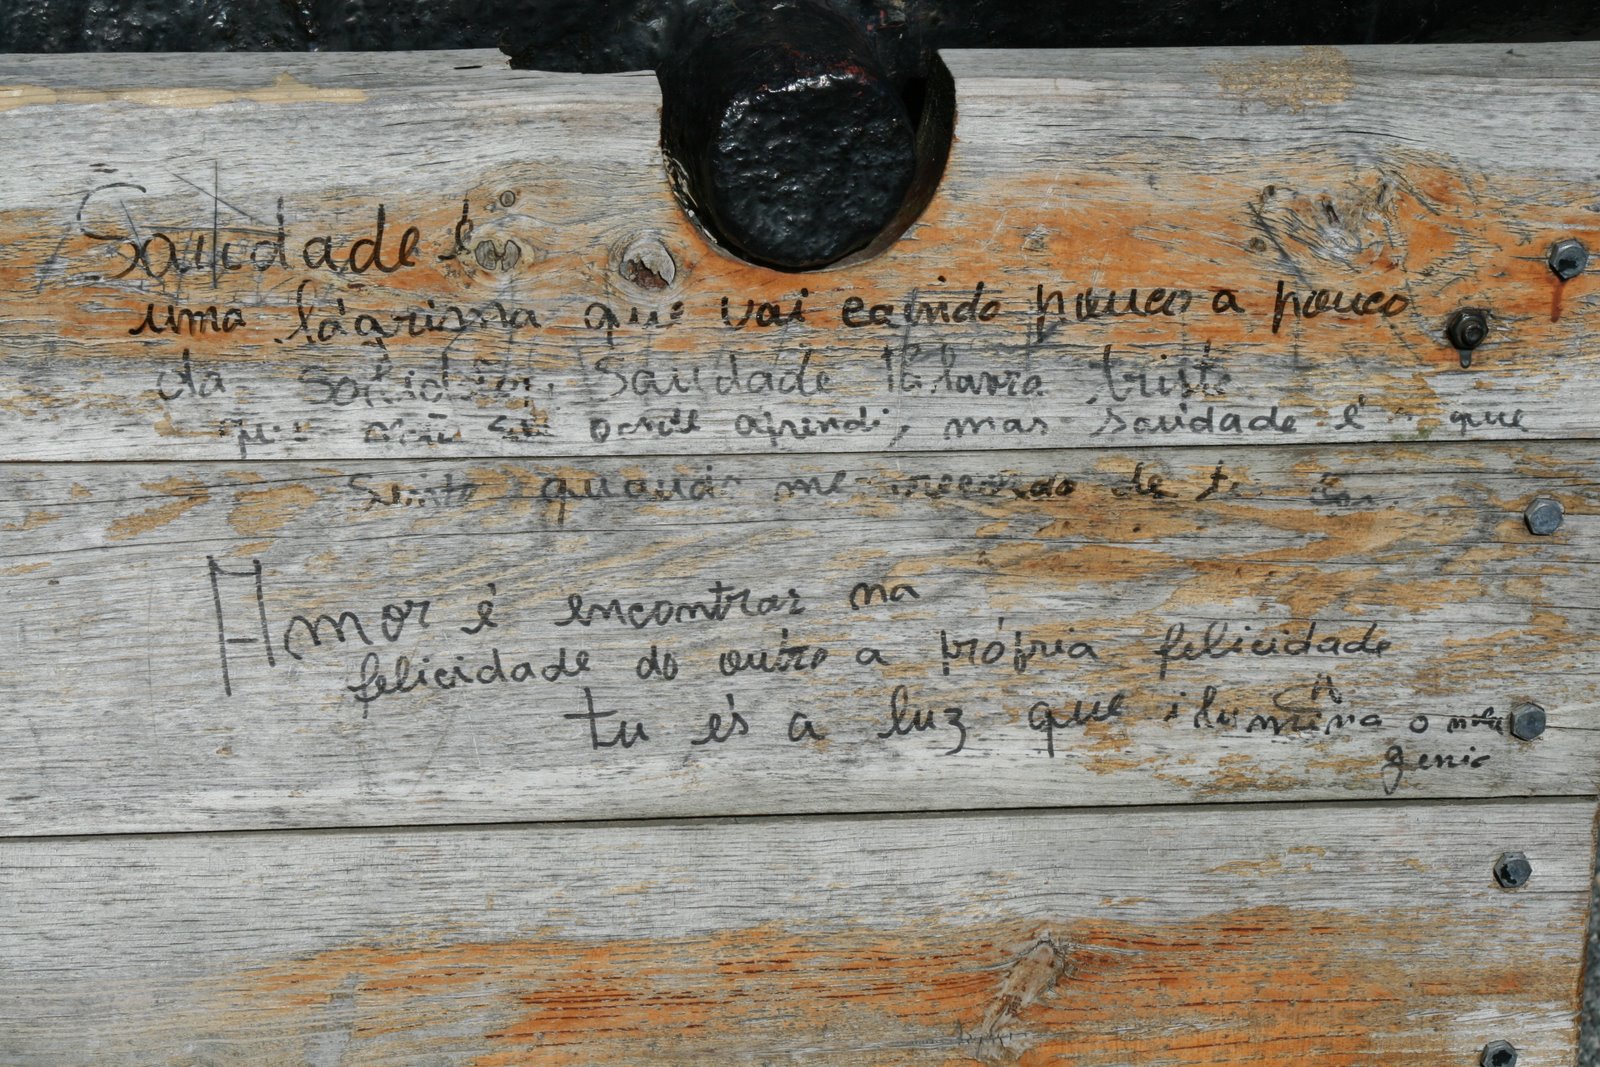 Saudade é
uma lágrima que vai caindo pouco a pouco
da Saudade Palavra triste
que não sei onde aprendi, mas Saudade é que
Sinto quando me recordo de ti
Amor é encontrar na
felicidade do outro a própria felicidade
tu és a luz que ilumina o meu
genio